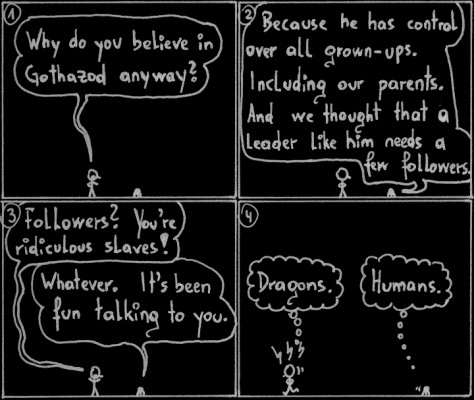 1
Why do you believe in
Gothazod anyway?
2
Because he has control
over all grown-ups.
Including our parents.
And we thought that a
leader like him needs a
few followers.
3
Followers? You're
ridiculous slaves!
Whatever. It's been
fun talking to you.
4
Dragons.
Humans.